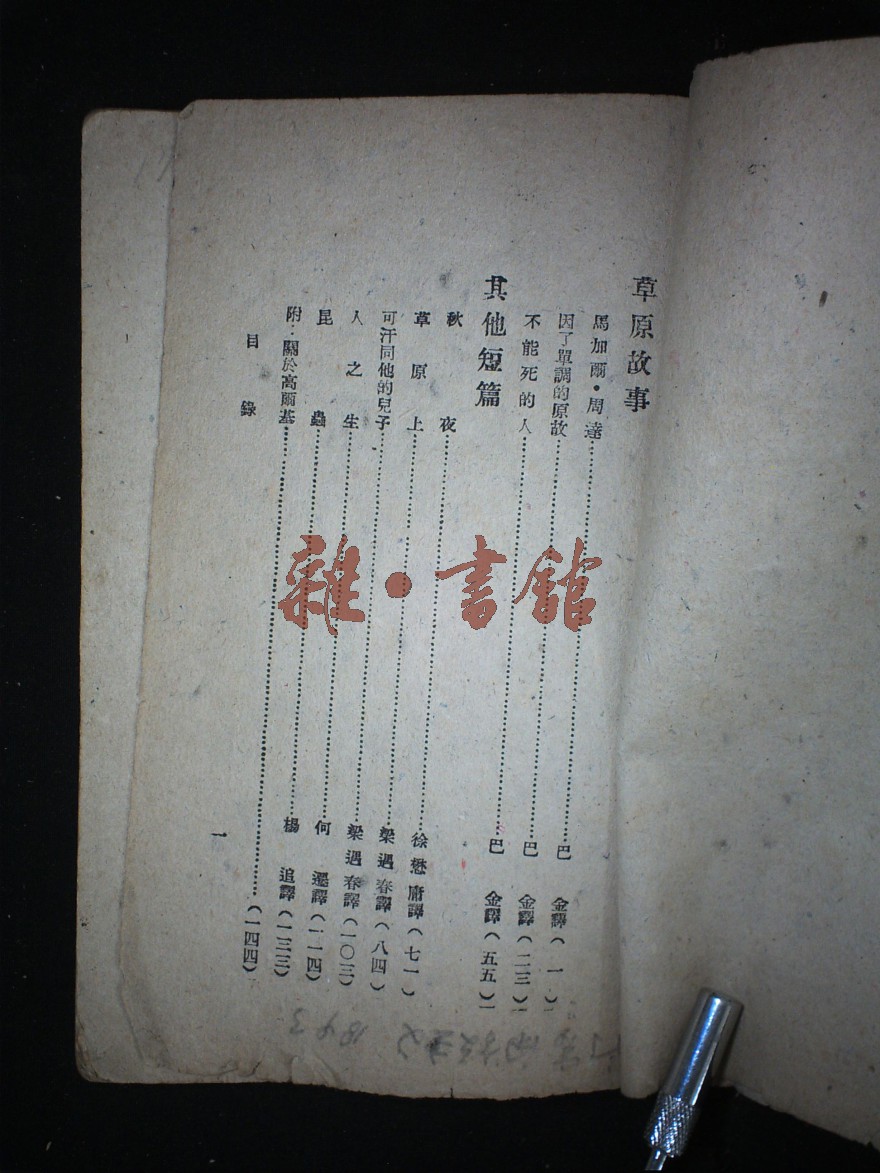 草原故事
馬加爾·周達……巴 金譯(一)
因了單調的原故……巴 金譯(二三)
不能死的人……巴 金譯(五五)
其他短篇
秋夜……徐懋庸譯(七一)
草原上……梁遇春譯(八四)
可汗同他的兒子……梁遇春譯(一〇三)
人之生……何 譯(一一四)
昆蟲……楊 追譯(一三三)
附:關於高爾基……(一四四)
目錄 一
雜·書館